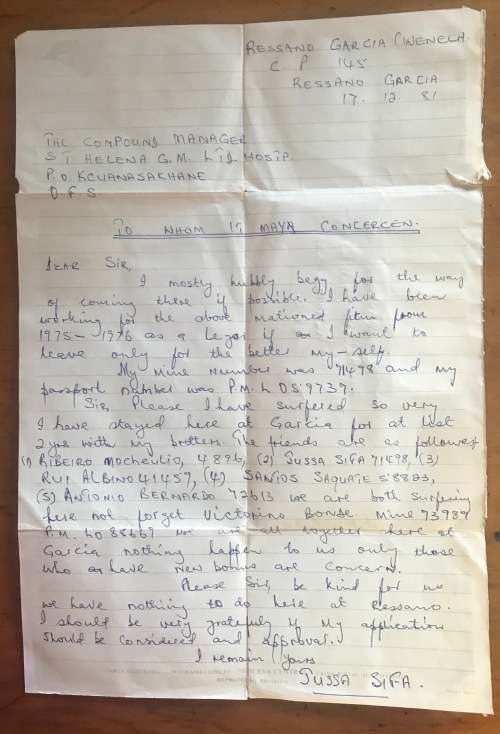 RESSANO GARCIA (WENELA
C. P 145
RESSANO GARCIA
17. 12. 81
THE COMPOUND MANAGER
ST HELENA G.M. LTD HOSTP.
P.O KCUANASAKHANE
O.F.S
TO WHOM IT MAYA CONCERCEN.
DEAR Sir,
I mostly hubbly begg for the way
of coming there if possible. I have been
working for the above mationed firm from
1975-1976 as a I want to
leave only for the better my-self.
My mine number was 71498 and my
passport number was P.M. L 059739.
Sir, Please I have surfered so very
I have stayed here at Garcia for at last
2 yrs with my brothers. The friends are as followest
(1) RIBEIRO MOCHEULIO, 4896, (2) JUSSA SIFA 71498, (3)
RUI ALBINO 41457, (4) SANTOS SAQUATE 58893,
(5) ANTONIO BERNARDO 72613 we are both surfering
here not forget Victorino Mine 73989
P.M. LO 88667 we are all together here at
Garcia nothing happen to us only those
who have new bonus are concern.
Please Sir, be kind for us
we have nothing to do here at Ressano.
I should be very gratefuly if my application
should be considered and approval.
I remain Yours
JUSSA SIFA.